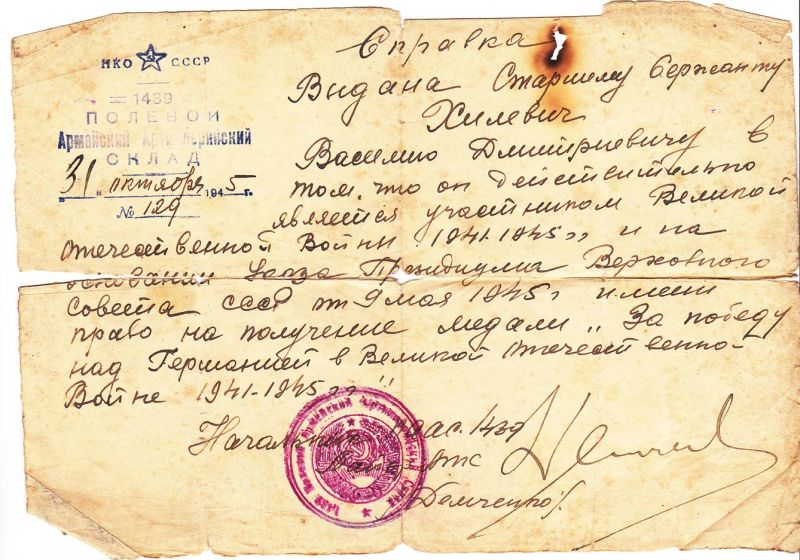 Справка
НКО СССР
1439
ПОЛЕВОЙ
Армейский Артиллерийский
СКЛАД
"31" октября 1945 г.
№ 129
Выдана Старшему Сержанту
Хилевич
Василию Дмитриевичу в
том, что он действительно
является участником Великой
Отечественной Войны 1941-1945 г.г. и на
основании Указа Президиума Верховного
совета СССР от 9 мая 1945 г имеет
право на получение медали „За победу
над Германией в Великой Отечественно-
Войне 1941-1945 г.г."
Начальник 1439
Демченко